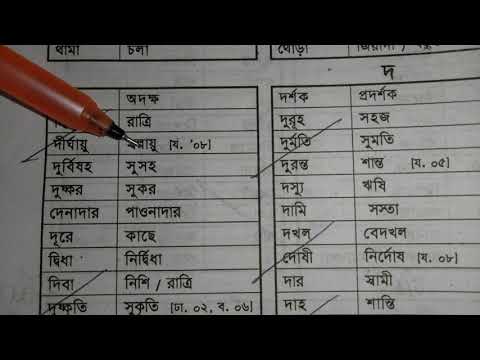 থামা চলা
থোড়া
দ
অদক্ষ
রাত্রি
দীর্ঘায়ু য. '০৮]
দুর্বিষহ সুসহ
দুষ্কর সুকর
দেনাদার পাওনাদার
দূরে কাছে
দ্বিধা নির্দ্বিধা
দিবা নিশি / রাত্রি
দুষ্কৃতি সুকৃতি [ঢা. ০২, ব. ০৬]
দর্শক প্রদর্শক
দুরূহ সহজ
দুর্মতি সুমতি
দুরন্ত শান্ত [য. ০৫]
দস্যু ঋষি
দামি সস্তা
দখল বেদখল
দোষী নির্দোষ [য. ০৮]
দার স্বামী
দাহ শান্তি